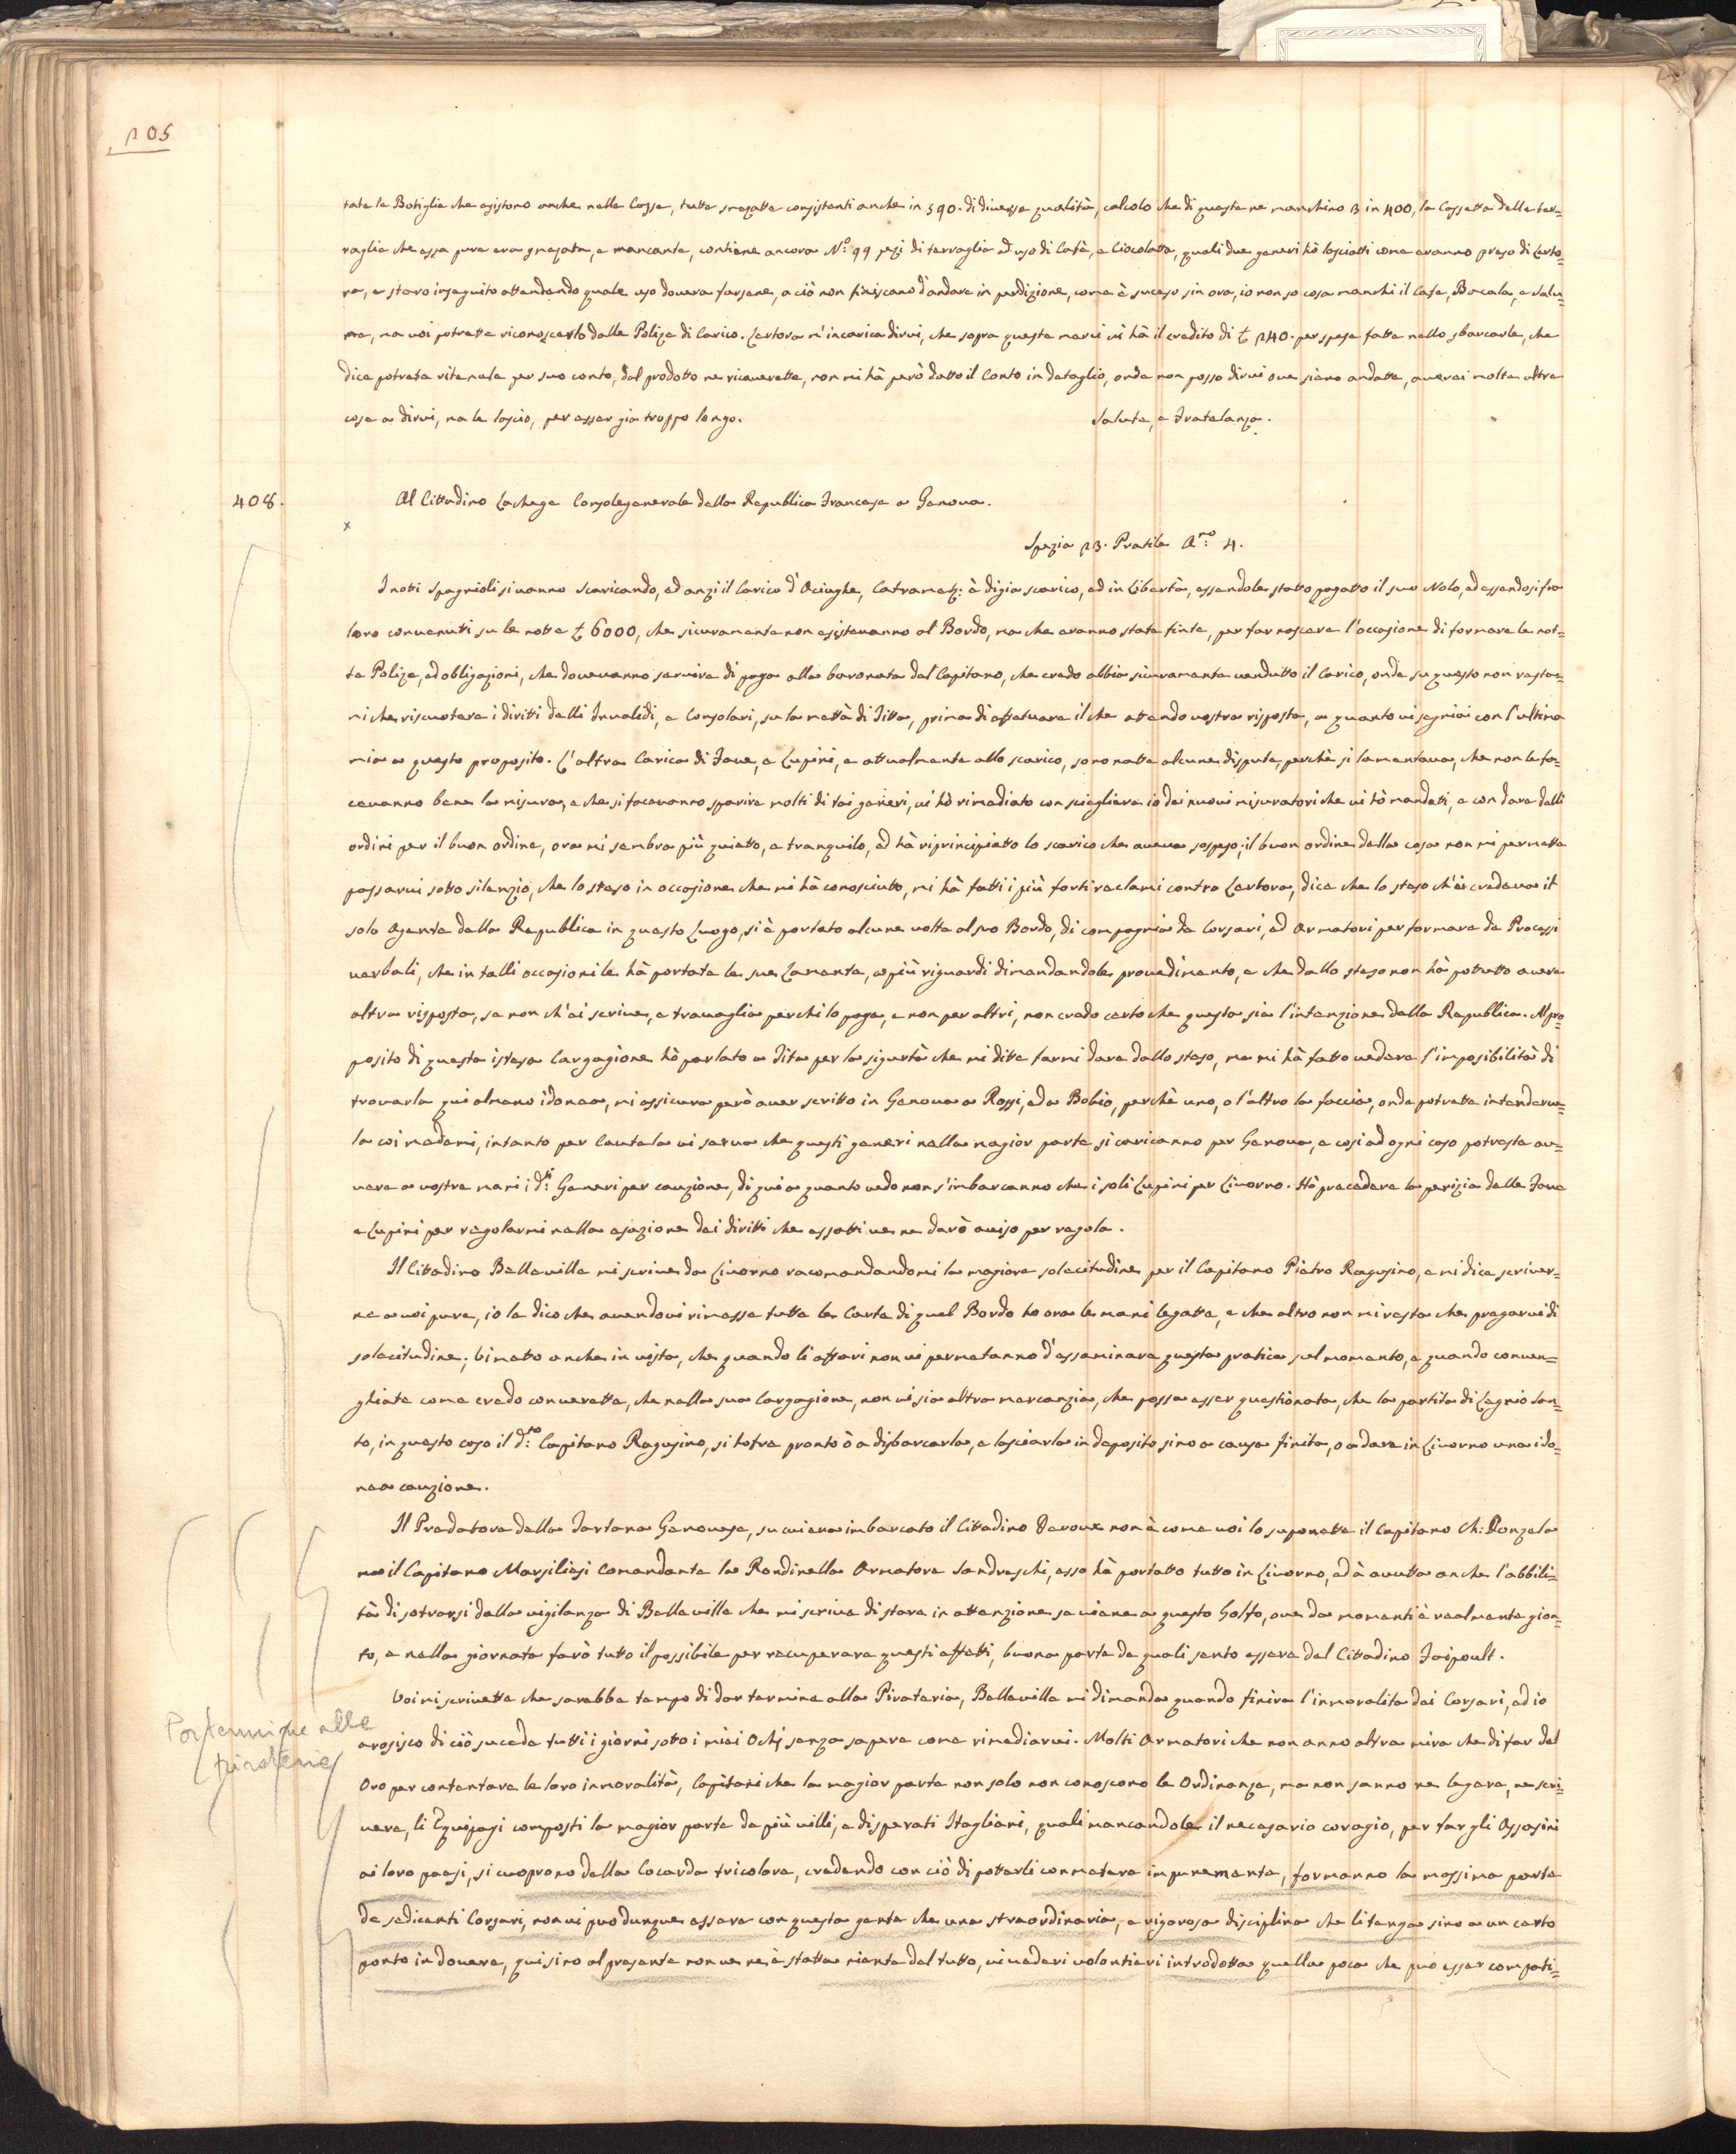 205
tate le Botiglie che esistono anche nelle Casse, tutte spezatte consistenti anche in 590. di diversa qualità, calcolo che di queste ne manchino 3 in 400, la Cassetta delle ter=
raglie che essa pure era spezata, e mancante, contiene ancora N.º 99 pezi di terraglia ad uso di Cafè, e Ciocolatta, quali due generi hò lasciatti come eranno preso di Certo=
ra, e starò inseguito attendendo quale uso dovera farsene, a ciò non finiscano d'andare in perdizione, come è suceso sin ora, io non so cosa manchi il Cafe, Bacala, e Salu=
me, ma voi potrette riconoscerlo dalle Polize di Carico. Certora m'incarica dirvi, che sopra queste merci vi hà il credito di £ 240. per spese fatte nello sbarcarle, che
dice potrete ritenele per suo conto, dal prodotto ne riceverette, non mi hà però datto il Conto in detaglio, onde non posso dirvi ove siano andatte, averei molte altre
cose a dirvi, ma le lascio, per esser gia troppo longo. Salute, e Fratelanza.
408. Al Cittadino Lachege Consolegenerale della Republica Francese a Genova.
x
Spezia 23. Pratile A.no 4.
I noti Spagnioli si vanno Scaricando, ed anzi il Carico d'Aciughe, Catramet: è digia scarico, ed in Libertà, essendole statto pagatto il suo Nolo, ed essendosi fra
loro convenuti su le note £ 6000, che sicuramente non esistevanno al Bordo, ma che eranno state finte, per far nascere l'occasione di formare le not=
te Polize, ed obligazioni, che dovevanno servire di paga alla baronata del Capitano, che credo abbia sicuramente vendutto il Carico, onde su questo non resta=
mi che riscuotere i diritti delli Invalidi, e Consolari, su la mettà di Titta, prima di effetuare il che attendo vostra risposta, a quanto vi segniai con l'ultima
mia a questo proposito. L'altra Carica di Fave, e Lupini, e attualmente allo scarico, sono natte alcune dispute, perchè si lamentava, che non le fa=
cevanno bene la misura, e che si facevanno sparire molti di tai generi, vi hò rimediato con sciegliere io dei nuovi misuratori che vi hò mandati, e con dare delli
ordini per il buon ordine, ora mi sembra più quietto, e tranquilo, ed hà riprincipiatto lo scarico che aveva sospeso; il buon ordine della cosa non mi permette
passarvi sotto silenzio, che lo steso in occasione che mi hà conosciutto, mi hà fatti i più forti reclami contro Certora, dice che lo steso ch'ei credeva il
solo Agente della Republica in questo Luogo, si è portato alcune volte al suo Bordo, di compagnia de Corsari, ed Armatori per formare de Processi
verbali, che in talli occasioni le hà portate le sue Lamente, a più riguardi dimandandole provedimento, e che dallo steso non hà potutto avere
altra risposta, se non ch'ei scrive, e travaglia perchi lo paga, e non per altri, non credo certo che questa sia l'intenzione della Republica. Al pro=
posito di questa istesa Cargagione hò parlato a Tita per la sigurtà che mi ditte farmi dare dallo steso, ma mi hà fatto vedere l'imposibilità di
trovarla qui almeno idonea, mi assicura però aver scritto in Genova a Rossi, ed a Bobio, perchè uno, o l'altro la faccia, onde potrette intenderve=
la coi medemi, intanto per Cautela vi serva che questi generi nella magior parte si caricanno per Genova, e cosi ad ogni caso potreste av=
vere a vostre mani i d.ti Generi per cauzione, di qui a quanto vedo non s'imbarcanno che i soli Lupini per Livorno. Hò precedere la perizia delle Fave
e Lupini per regolarmi nella esazione dei diritti che essatti ve ne darò aviso per regola.
Il Cittadino Belleville mi scrive da Livorno racomandandomi la magiore solecitudine per il Capitano Pietro Ragusino, e mi dice scriver=
ne a voi pure, io le dico che avendovi rimesse tutte le Carte di quel Bordo ho ora le mani legatte, e che altro non mi resta che pregarvi di
solecitudine; Vi metto anche in vista, che quando li affari non vi permetanno d'essaminare questa pratica sul momento, e quando conven=
ghiate come credo converette, che nella sua Cargagione, non vi sia altra mercanzia, che possa esser questionata, che la partita di Legnio San=
to, in questo caso il d.to Capitano Ragusino, si hofre pronto ò a disbarcarla, e lasciarla in deposito sino a causa finita, o a dare in Livorno una ido=
nea cauzione.
Il Predatore della Tartana Genovese, su cui era imbarcato il Cittadino Devoux non è come voi lo suponette il Capitano Ch: Ronzela
ma il Capitano Marsiliesi Comandante la Rondinella Armatore Sandreschi, esso hà portatto tutto in Livorno, ed à avutta anche l'abbili=
tà di sotrarsi dalla vigilanza di Belleville che mi scrive di stare in attenzione se viene a questo Golfo, ove da momenti è realmente gion=
to, e nella giornata farò tutto il possibile per recuperare questi effetti, buona parte de quali sento essere del Cittadino Faipoult.
Voi mi scrivette che sarebbe tempo di dar termine alla Pirateria, Belleville mi dimanda quando finira l'inmoralita dei Corsari, ed io
arosisco di ciò sucede tutti i giorni sotto i miei Ochj senza sapere come rimediarvi. Molti Armatori che non anno altra mira che di far del
Oro per contentare le loro inmoralità, Capitani che la magior parte non solo non conoscono le Ordinanze, ma non sanno ne legere, ne scri=
vere, li Equipagi composti la magior parte de più villi, e disperati Itagliani, quali mancandole il necesario coragio, per far gli Assasini
ai loro paesi, si cuoprono della Cocarda tricolore, credendo con ciò di poterli cormetere impunemente, formanno la massima parte
de sedicenti Corsari, non vi puo dunque essere con questa gente che una straordinaria, e rigorosa disciplina che li tenga sino a un certo
ponto in dovere, qui sino al presente non ve ne è statta niente del tutto, vi vederei volontieri introdotta quella poca che può esser compati=